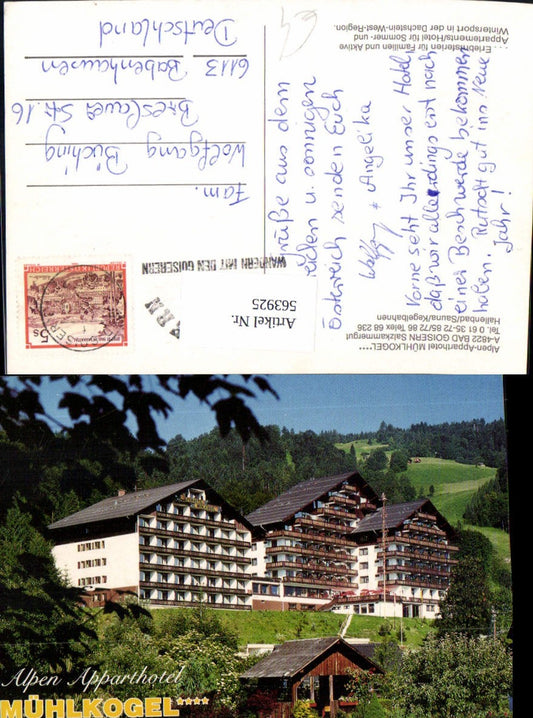 Alpen-Apparthotel MÜHLKOGEL****
A-4822 BAD GOISERN Salzkammergut
Tel. 0 61 35-72 86/75 86 Telex 68 236
Hallenbad/Sauna/Kegelbahnen
. . . Erlebnisferien für Familien und Aktive
Appartements/Hotel für Sommer- und
Wintersport in der Dachstein-West-Region.
Grüße aus dem
u. sonnigen
Österreich senden Euch
Wolfgang + Angelika
Vorne seht Ihr unser Hotel,
daß wir allerdings erst nach
einer Beschwerde bekommen
haben. Rutscht gut ins Neue
Jahr!
WANDERN MIT DEN GOISERERN
REPUBLIK ÖSTERREICH
5s
Artikel Nr.
563925
Fam.
Wolfgang Büching
Breslauer Str. 16
6113 Babenhausen
Deutschland
Alpen Apparthotel
MÜHLKOGEL****